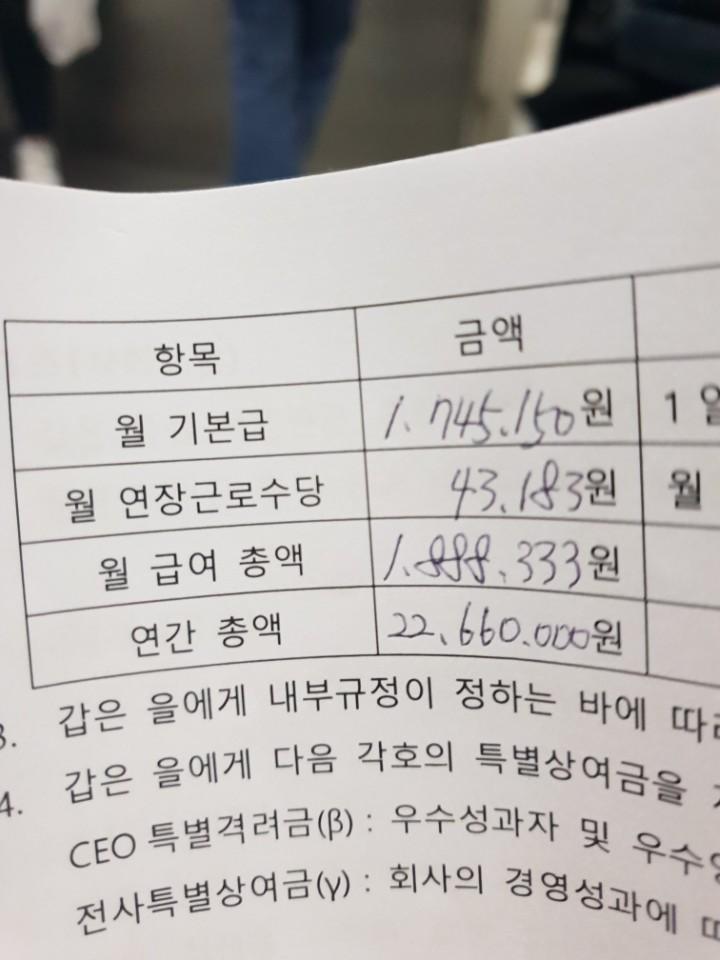 항목 금액
월 기본급 1.745.150원 1 일
월 연장근로수당 43.183원 월
월 급여 총액 1.888.333원
연간 총액 22.660.000원
3. 갑은 을에게 내부규정이 정하는 바에
4. 갑은 을에게 다음 각호의 특별상여금을
CEO 특별격려금(β) : 우수성과자 및
전사특별상여금(γ) : 회사의 경영성과에